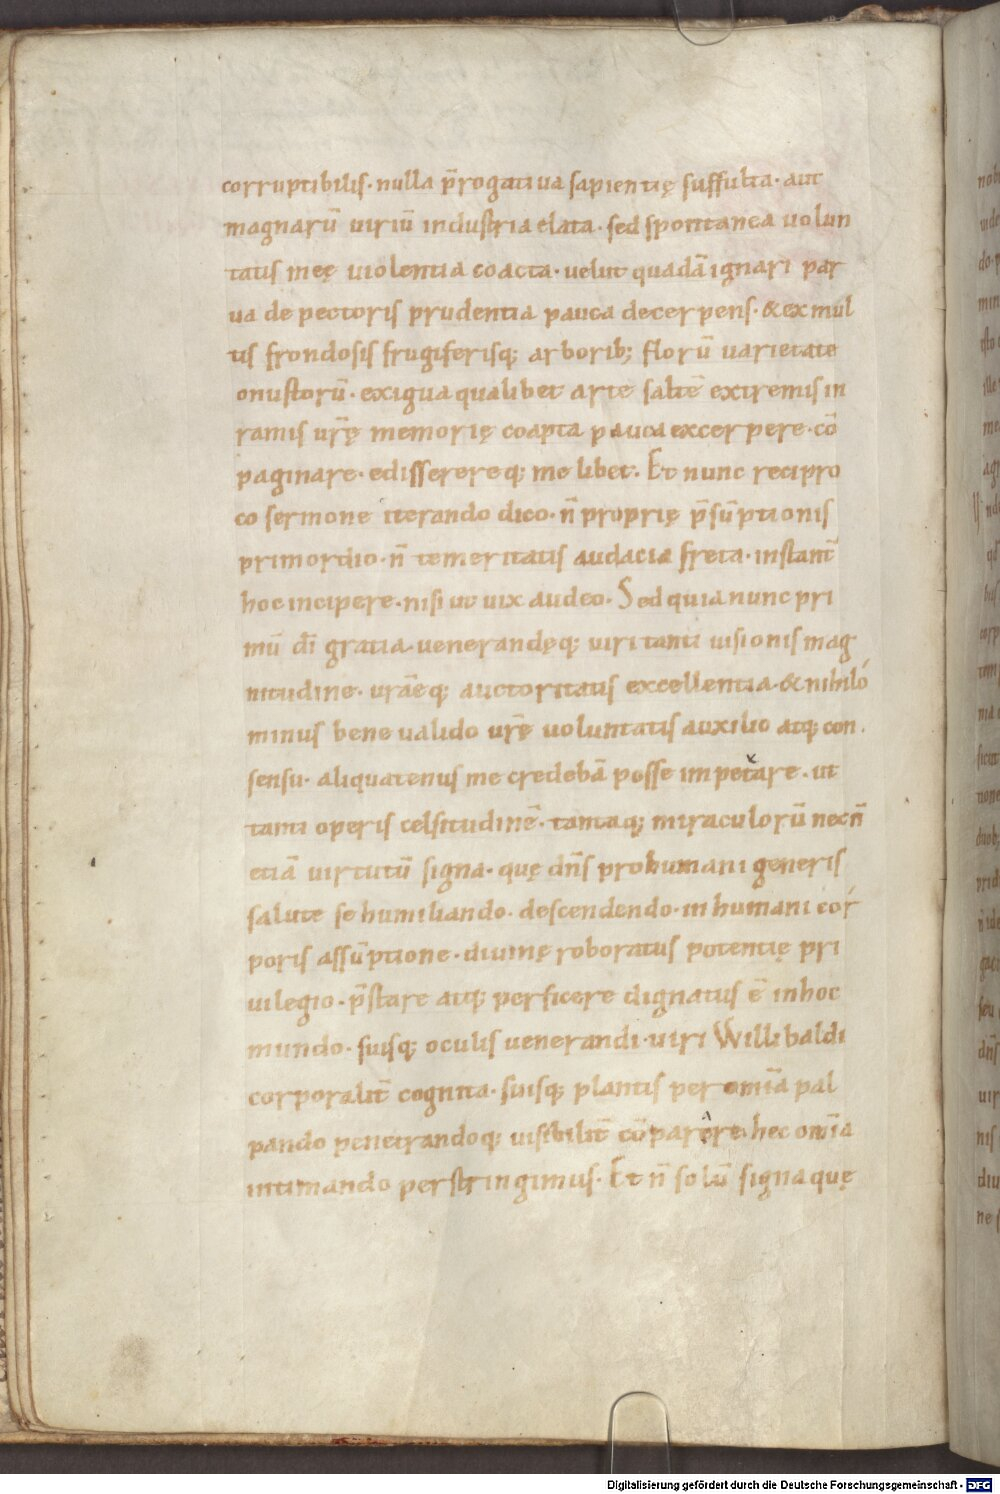 corruptibilis· nulla p̄rogatiua sapientię suffulta· aut
magnarū viriū industria elata· sed spontanea uolun
tatis meę uiolentia coacta· uelut quadā ignari par
ua de pectoris prudentia pauca decerpens· & ex mul
tis frondosis frugiferisq; arborib; florū uarietate
onustorū· exigua qualibet arte saltē extremis in
ramis ur̄ę memorię coapta pauca excerpere· cō
paginare· edisserereq; me libet. Et nunc recipro
co sermone iterando dico· n̄ proprię p̄sūptionis
primordio· n̄ temeritatis audacia freta· instant̄
hoc incipere· nisi ut uix audeo. Sed quia nunc pri
mū dī gratia· uenerandęq; uiri tanti uisionis mag
nitudine· urāeq; auctoritatis excellentia· & nihiló
minus bene ualido ur̄ę uoluntatis auxilio atq; con
sensu· aliquatenus me credebā posse impetare· ut
tanti operis celsitudinē· tantaq; miraculorū necn̄
etiā uirtutū signa· quę dn̄s pro humani generis
salute se humiliando· descendendo· in humani cor
poris assūptione· diuinę roboratus potentię pri
uilegio· p̄stare atq; perficere dignatus ē in hoc
mundo· suisq; oculis uenerandi· uiri Willibaldi
corporalit̄ cognita· suisq; plantis per omīa pal
pando penetrandoq; uisibilit̄ cōparere· hec omīa
intimando perstringimus· Et n̄ solū signa quę
Digitalisierung gefördert durch die Deutsche Forschungsgemeinschaft - DFG